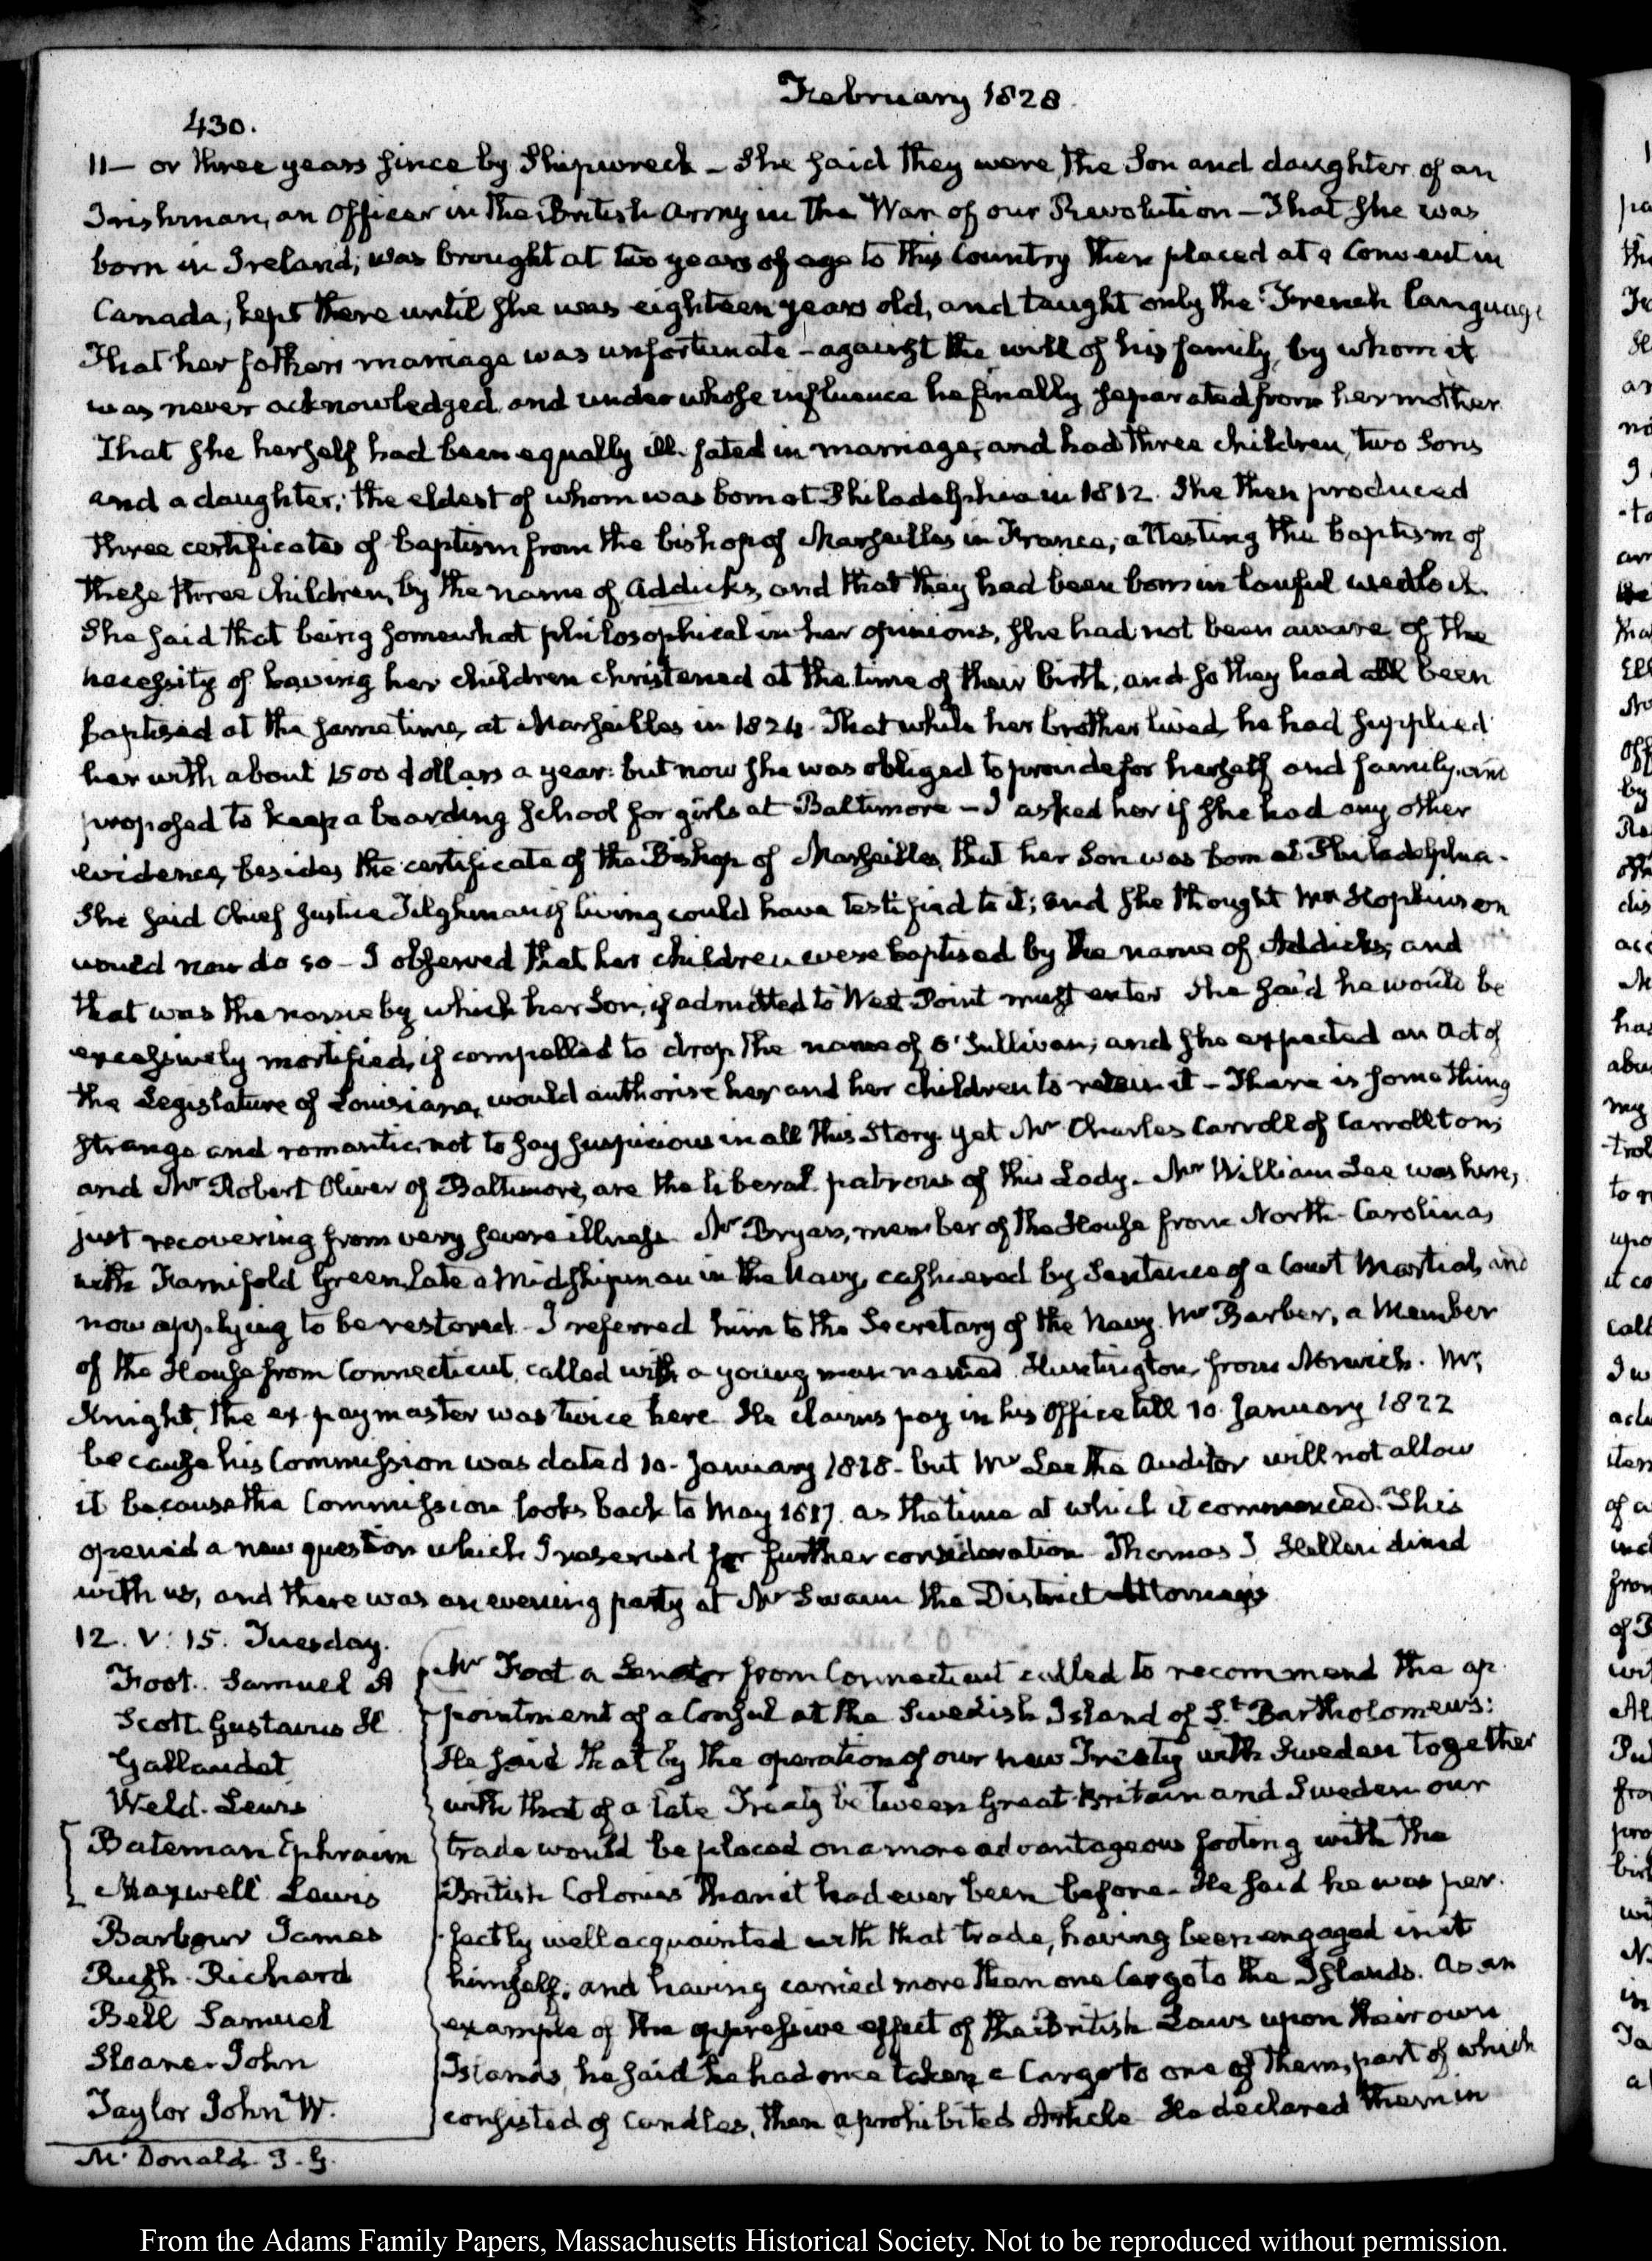 February 1828
430.
11 — or three years since by Shipwreck - She said they were the Son and daughter of an
Irishman, an Officer in the British Army in the War of our Revolution - That she was
born in Ireland; was brought at two years of age to this Country then placed at a Convent in
Canada; kept there until she was eighteen years old, and taught only the French language
That her father's marriage was unfortunate - against the will of his family, by whom it
was never acknowledged, and under whose influence he finally separated from her mother
That she herself had been equally ill-fated in marriage; and had three children, two Sons
and a daughter; the eldest of whom was born at Philadelphia in 1812. She then produced
three certificates of baptism from the bishop of Marseilles in France, attesting the baptism of
these three children, by the name of Addicks, and that they had been born in lawful wedlock.
She said that being somewhat philosophical in her opinions, she had not been aware of the
necessity of having her children christened at the time of their birth; and so they had all been
baptised at the same time, at Marseilles in 1824. That while her brother lived, he had supplied
her with about 1500 dollars a year: but now she was obliged to provide for herself and family, and
proposed to keep a boarding school for girls at Baltimore - I asked her if she had any other
evidence, besides the certificate of the Bishop of Marseilles, that her Son was born at Philadelphia.
She said Chief Justice Tilghman if living could have testified to it; and she thought Mr Hopkinson
would now do so - I observed that her children were baptised by the name of Addicks; and
that was the name by which her Son, if admitted to West Point must enter. She said he would be
excessively mortified, if compelled to drop the name of O'Sullivan; and she expected an Act of
the Legislature of Louisiana, would authorise her and her children to retain it - There is something
strange and romantic, not to say suspicious in all this Story. yet Mr Charles Carroll of Carrollton;
and Mr Robert Oliver of Baltimore, are the liberal patrons of this Lady. Mr William Lee was here,
just recovering from very severe illness. Mr Bryan, member of the House from North-Carolina,
with Farnifold Green, late a Midshipman in the Navy, cashiered by Sentence of a Court Martial, and
now applying to be restored. I referred him to the Secretary of the Navy. Mr Barber, a Member
of the House from Connecticut, called with a young man named Huntington, from Norwich. Mr
Knight, the ex paymaster was twice here. He claims pay in his Office till 10. January 1822
because his Commission was dated 10. January 1818 - but Mr Lee the Auditor will not allow
it because the Commission looks back to May 1817. as the time at which it commenced. This
opened a new question which I reserved for further consideration. Thomas J. Hellen dined
with us, and there was an evening party at Mr Swann the District Attorney's
12. V: 15. Tuesday.
Foot. Samuel A
Scott. Gustavus H.
Gallaudet
Weld. Lewis
Bateman Ephraim
Maxwell Lewis
Barbour James
Rush. Richard
Bell Samuel
Sloane. John
Taylor John W.
McDonald. J. G.
Mr Foot a Senator from Connecticut called to recommend the ap-
pointment of a Consul at the Swedish Island of St. Bartholomews:
He said that by the operation of our new Treaty with Sweden together
with that of a late Treaty between Great-Britain and Sweden our
trade would be placed on a more advantageous footing with the
British Colonies than it had ever been before. He said he was per-
-fectly well acquainted with that trade, having been engaged in it
himself; and having carried more than one Cargo to the Islands. As an
example of the oppressive effect of the British Laws upon their own
Islands, he said he had once taken a Cargo to one of them, part of which
consisted of candles, then a prohibited Article. He declared them in
From the Adams Family Papers, Massachusetts Historical Society. Not to be reproduced without permission.